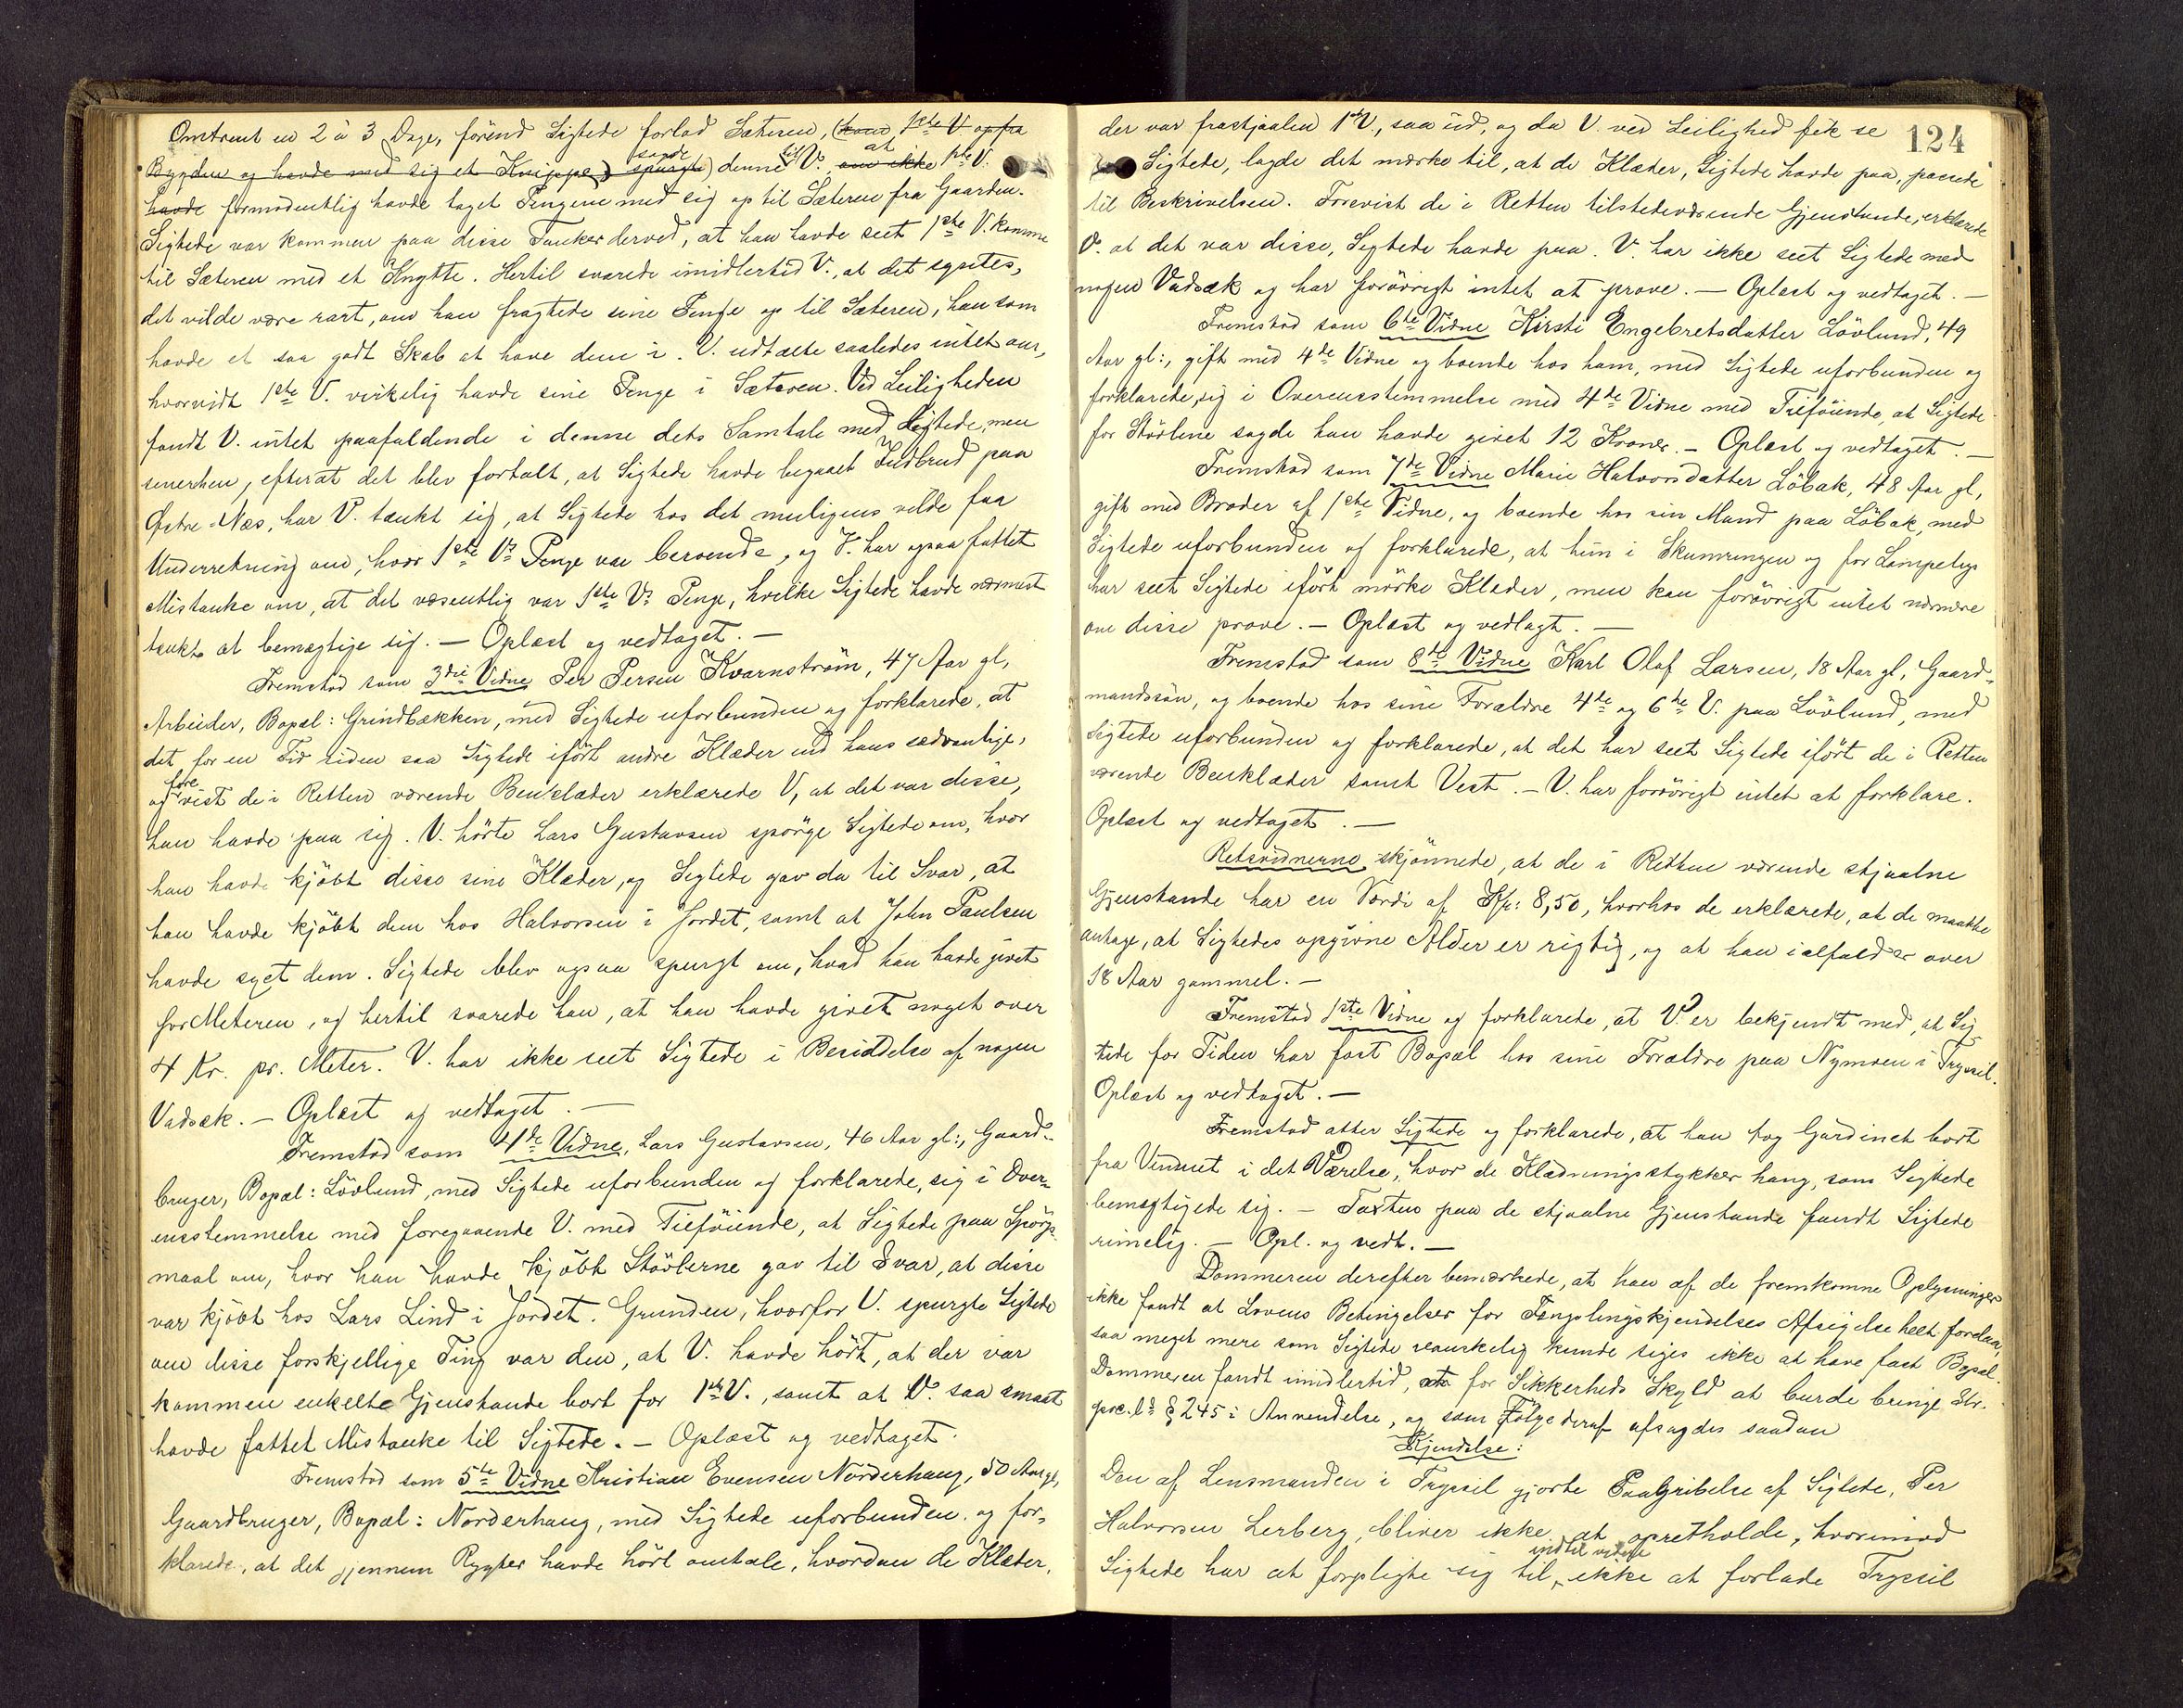 Omtrent en 2 à 3 Dage, förend Sigtede forlod Sæteren, (kom 1ste V. op fra
Bygden og havde med sig et Knippe) sagde spurgte) denne til V., at om ikke 1ste V.
havde formodentlig havde taget Pengene med sig op til Sæteren fra Gaarden.
Sigtede var kommen paa disse Tanker derved, at han havde seet 1ste V. komme
til Sæteren med et Knytte. Hertil svarede imidlertid V., at det syntes,
det vilde være rart, om han fragtede sine Penge op til Sæteren, han som
havde et saa godt Skab at have dem i. V. udtalte saaledes intet om,
hvorvidt 1ste V. virkelig havde sine Penge i Sæteren. Ved Leiligheden
fandt V. intet paafaldende i denne dets Samtale med Sigtede, men
senerhen, efterat det blev fortalt, at Sigtede havde begaaet Indbrud paa
Østre Næs, har V. tænkt sig, at Sigtede hos det muligens vilde faa
Underretning om, hvor 1ste V's Penge var beroende, og V. har ogsaa fattet
Mistanke om, at det væsentlig var 1ste V's Penge, hvilke Sigtede havde nærmest
tænkt at bemægtige sig. — Oplæst og vedtaget. —
Fremstod som 3die Vidne Per Persen Kvarnström, 47 Aar gl,
Arbeider, Bopæl: Grindbækken, med Sigtede uforbunden og forklarede, at
det for en Tid siden saa Sigtede iført andre Klæder end hans sædvanlige,
og forevist de i Retten værende Benklæder erklærede V, at det var disse,
han havde paa sig. V. hörte Lars Gustavsen spörge Sigtede om, hvor
han havde kjöbt disse sine Klæder, og Sigtede gav da til Svar, at
han havde kjöbt dem hos Halvorsen i Jordet, samt at John Paulsen
havde syet dem. Sigtede blev ogsaa spurgt om, hvad han havde givet
for Meteren, og hertil svarede han, at han havde givet noget over
4 Kr. pr. Meter. V. har ikke seet Sigtede i Besiddelse af nogen
Vadsæk. — Oplæst og vedtaget. —
Fremstod som 4de Vidne, Lars Gustavsen, 46 Aar gl:, Gaard-
bruger, Bopæl: Lövlund, med Sigtede uforbunden og forklarede, sig i Over-
ensstemmelse med foregaaende V. med Tilföiende, at Sigtede paa Spörgs-
maal om, hvor han havde kjöbt Stövlerne gav til Svar, at disse
var kjöbt hos Lars Lind i Jordet. Grunden, hvorfor V. spurgte Sigtede
om disse forskjellige Ting var den, at V. havde hört, at der var
kommen enkelte Gjenstande bort for 1ste V., samt at V. saa smaat
havde fattet Mistanke til Sigtede. — Oplæst og vedtaget.
Fremstod som 5te Vidne Kristian Evensen Norderhaug, 50 Aar gl,
Gaardbruger, Bopæl: Norderhaug, med Sigtede uforbunden og for-
klarede, at det gjennem Rygter havde hört omtale, hvordan de Klæder,
124
der var frastjaalen 1ste V., saa ud, og da V. ved Leilighed fik se
Sigtede, lagde det mærke til, at de Klæder, Sigtede havde paa, passede
til Beskrivelsen. Forevist de i Retten tilstedeværende Gjenstande, erklærede
V. at det var disse, Sigtede havde paa. V. har ikke seet Sigtede med
nogen Vadsæk og har forövrigt intet at prove. — Oplæst og vedtaget. —
Fremstod som 6te Vidne Kirsti Engebretsdatter Lövlund, 49
Aar gl:, gift med 4de Vidne og boende hos ham, med Sigtede uforbunden og
forklarede, sig i Overensstemmelse med 4de Vidne med Tilföiende, at Sigtede
for Stövlene sagde han havde givet 12 Kroner. — Oplæst og vedtaget. —
Fremstod som 7de Vidne Marie Halvorsdatter Löbak, 48 Aar gl,
gift med Broder af 1ste Vidne, og boende hos sin Mand paa Löbak, med
Sigtede uforbunden og forklarede, at hun i Skumringen og for Lampelys
har seet Sigtede iført mörke Klæder, men kan forövrigt intet nærmere
om disse prove. — Oplæst og vedtagt. —
Fremstod som 8de Vidne Karl Olaf Larsen, 18 Aar gl, Gaard-
mandssön, og boende hos sine Forældre 4de og 6te V. paa Lövlund, med
Sigtede uforbunden og forklarede, at det har seet Sigtede iført de i Retten
værende Benklæder samt Vest. — V. har forövrigt intet at forklare.
Oplæst og vedtaget. —
Retsvidnerne skjönnede, at de i Retten værende stjaalne
Gjenstande har en Værdi af Kr: 8,50, hvorhos de erklærede, at de maatte
antage, at Sigtedes opgivne Alder er rigtig, og at han ialfald er over
18 Aar gammel. —
Fremstod 1ste Vidne og forklarede, at V. er bekjendt med, at Sig-
tede for Tiden har fast Bopæl hos sine Forældre paa Nymoen i Trysil.
Oplæst og vedtaget. —
Fremstod atter Sigtede og forklarede, at han tog Gardinet bort
fra Vinduet i det Værelse, hvor de Klædningsstykker hang, som Sigtede
bemægtigede sig. — Taxten paa de stjaalne Gjenstande fandt Sigtede
rimelig. — Opl. og vedt. —
Dommeren derefter bemærkede, at han af de fremkomne Oplysninger
ikke fandt at Lovens Betingelser for Fængslingskjendelses Afsigelse helt forelaa,
saa meget mere som Sigtede vanskelig kunde siges ikke at have fast Bopæl.
Dommeren fandt imidlertid, at for Sikkerheds Skyld at burde bringe Str.
prc. l's § 245 i Anvendelse, og som Fölge deraf afsagdes saadan
Kjendelse:
Den af Lensmanden i Trysil gjorte Paagribelse af Sigtede, Per
Halvorsen Lerberg, bliver ikke at opretholde, hvorimod
Sigtede har at forpligte sig til, indtil videre ikke at forlade Trysil